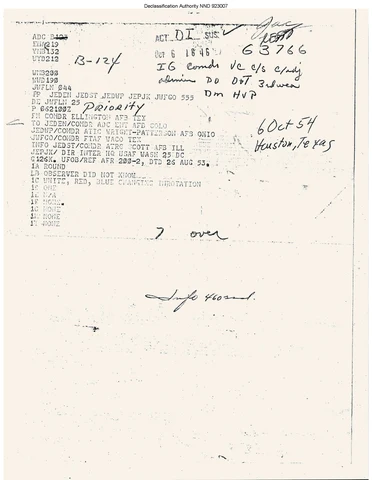 Declassification Authority NND 923007
ADC B103
ACT DI SUS
YHB132
WYD212
Oct 6 18 46
63766
B-124
IG comds VC c/s c/adj
WMB200
MUD198
JWFLN 044
admin DO DOT
Dm HVP
PP JEDEN JEDST JEDWP JEPJK JUFGO 555
DE JWFLN 25
Priority
P 062100Z
FM COMDR ELLINGTON AFB TEX
TO JEDEN/COMDR ADC ENT AFB COLO
JEDWP/COMDR ATIC WRIGHT-PATTERSON AFB OHIO
JUFGO/COMDR FTAF WACO TEX
INFO JEDST/COMDR ATRC SCOTT AFB ILL
JEPJK/ DIR INTER HQ USAF WASH 25 DC
6 Oct 54
Houston, Texas
G126K, UFOB/REF AFR 200-2, DTD 26 AUG 53.
1A ROUND
1B OBSERVER DID NOT KNOW
1C WHITE, RED, BLUE CHANGING INROTATION
1D ONE
1E N/A
1F NONE.
1G NONE
1H NONE
1I NONE
7 over
Info 460 2nd.